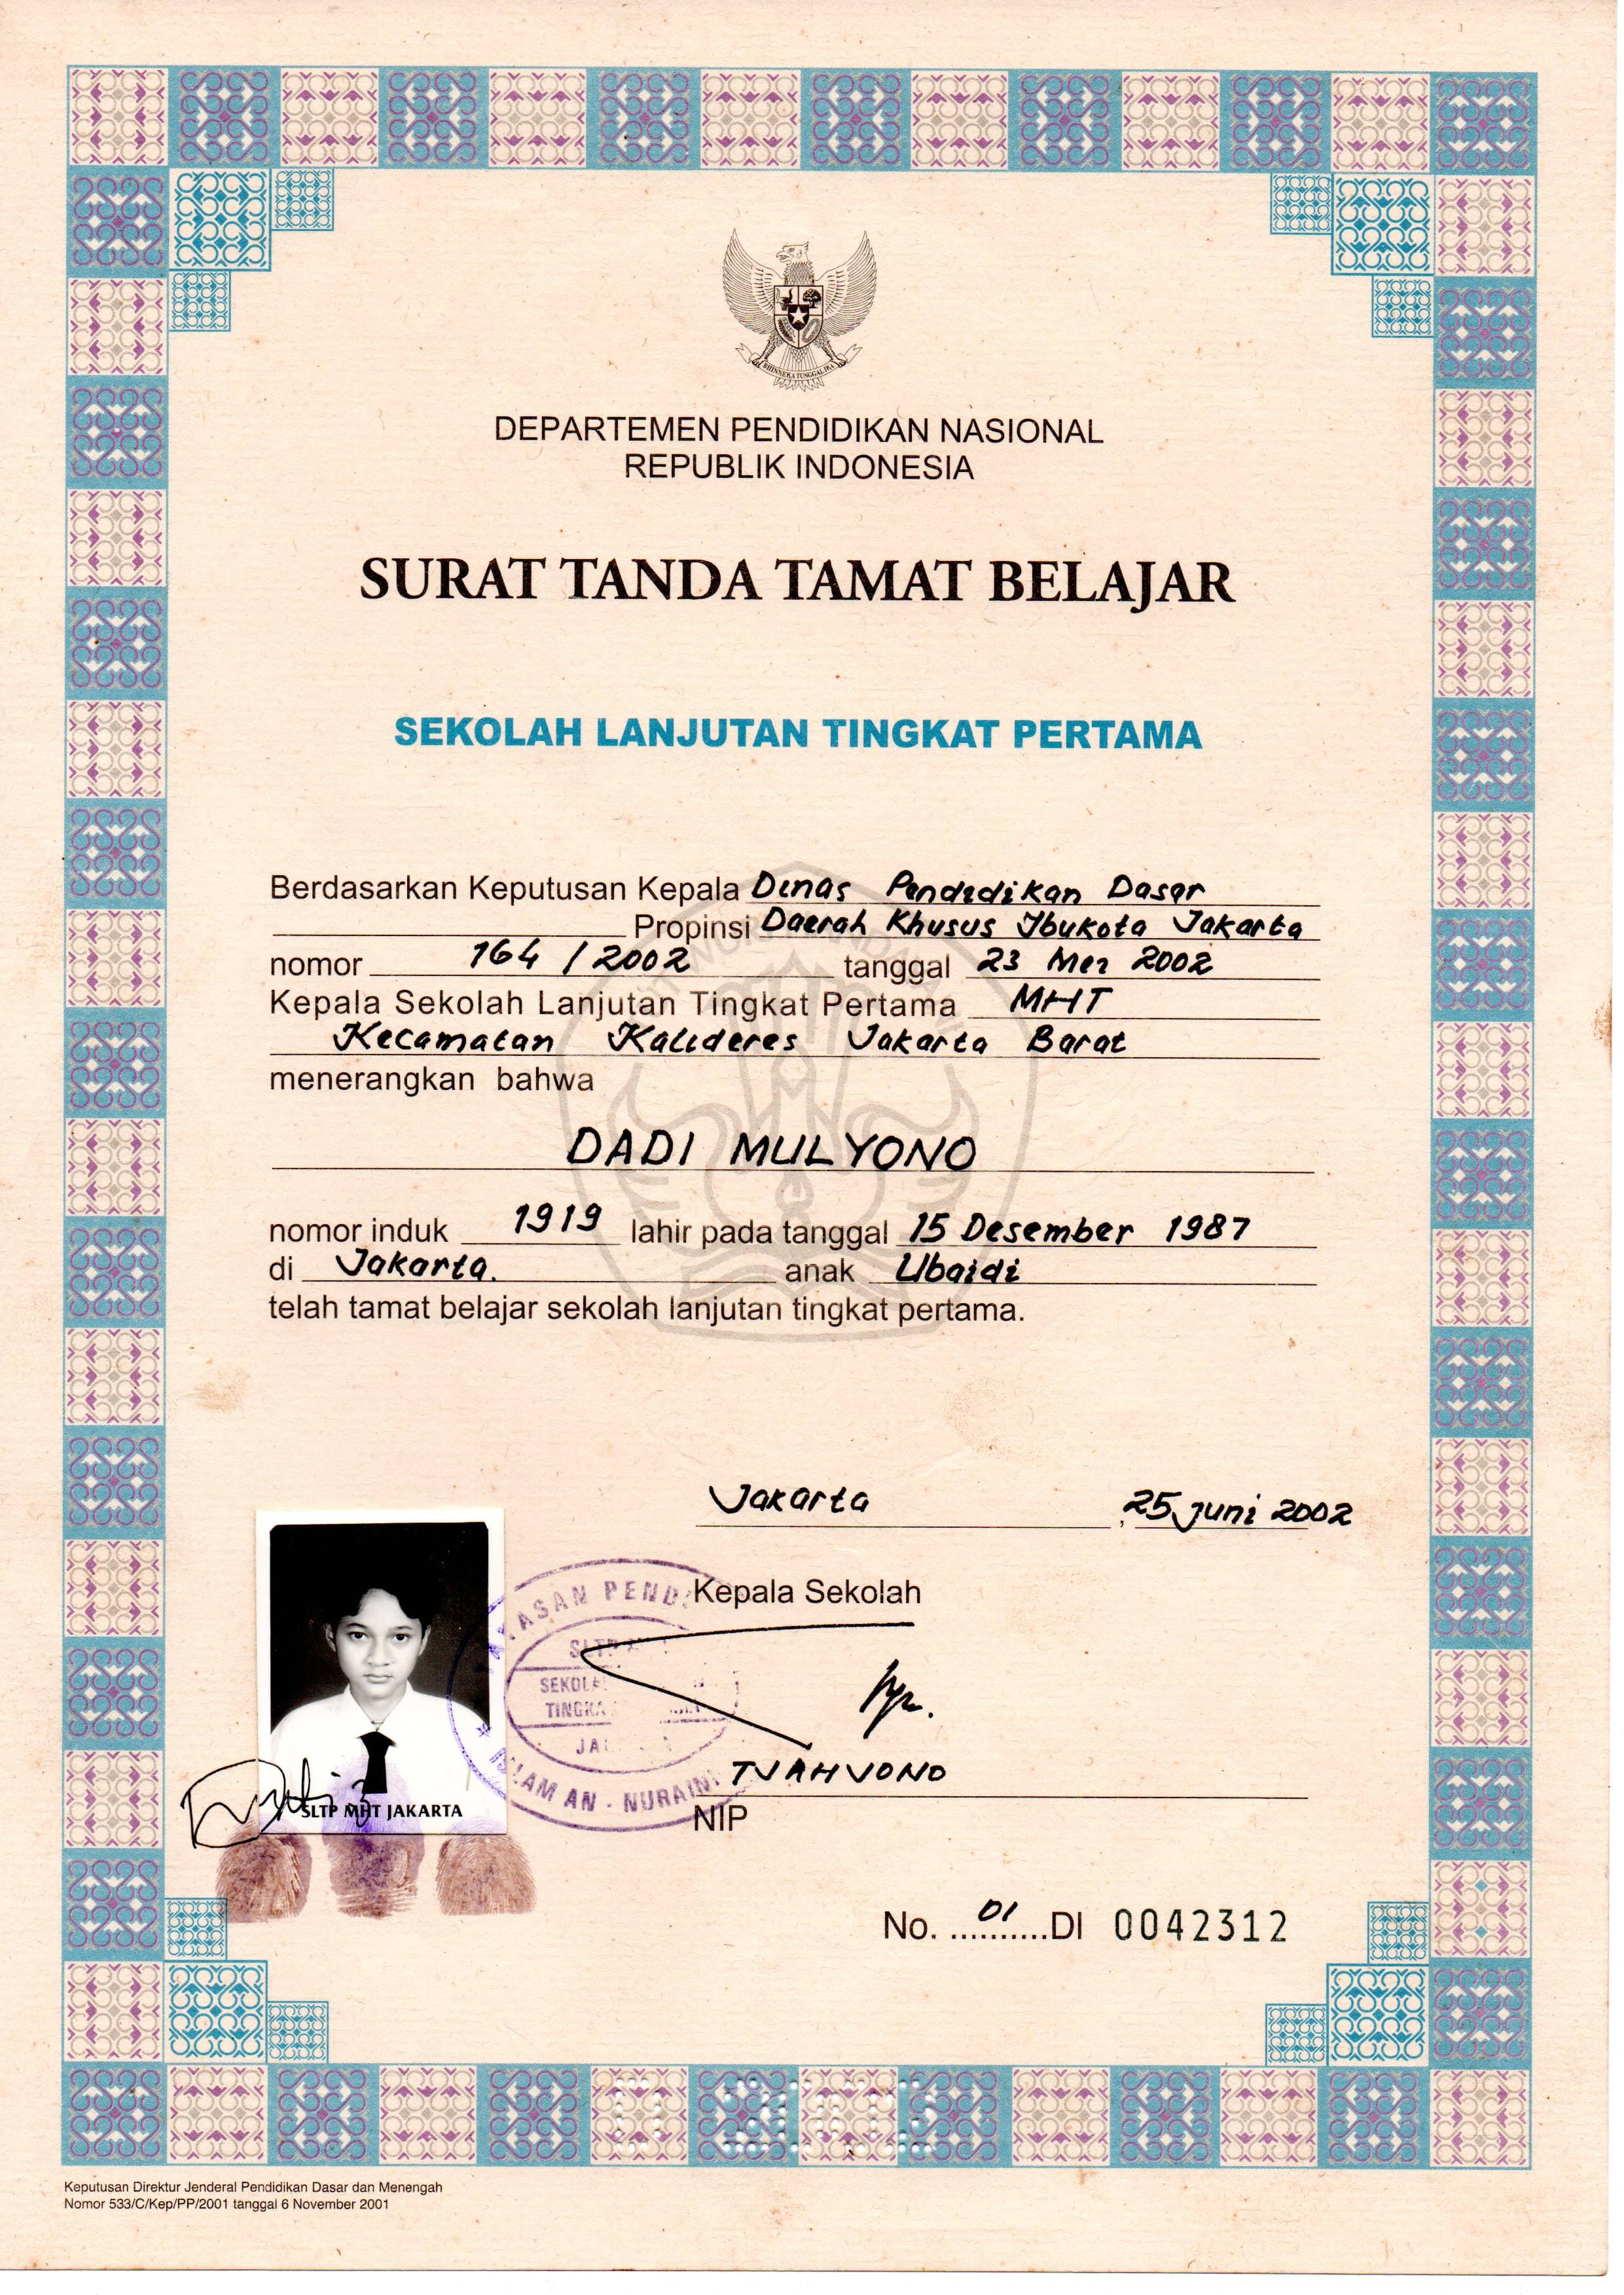 BHINNEKA TUNGGAL IKA
DEPARTEMEN PENDIDIKAN NASIONAL
REPUBLIK INDONESIA
SURAT TANDA TAMAT BELAJAR
SEKOLAH LANJUTAN TINGKAT PERTAMA
Berdasarkan Keputusan Kepala Dinas Pendidikan Dasar
Propinsi Daerah Khusus Ibukota Jakarta
nomor 164 / 2002 tanggal 23 Mei 2002
Kepala Sekolah Lanjutan Tingkat Pertama MHT
Kecamatan Kalideres Jakarta Barat
menerangkan bahwa
DADI MULYONO
nomor induk 1919 lahir pada tanggal 15 Desember 1987
di Jakarta. anak Ubaidi
telah tamat belajar sekolah lanjutan tingkat pertama.
Jakarta , 25 Juni 2002
Kepala Sekolah
SLTP
ISLAM AN - NURAIN
TJAHJONO
NIP
SLTP MHT JAKARTA
No. 01 ..........DI 0042312
Keputusan Direktur Jenderal Pendidikan Dasar dan Menengah
Nomor 533/C/Kep/PP/2001 tanggal 6 November 2001